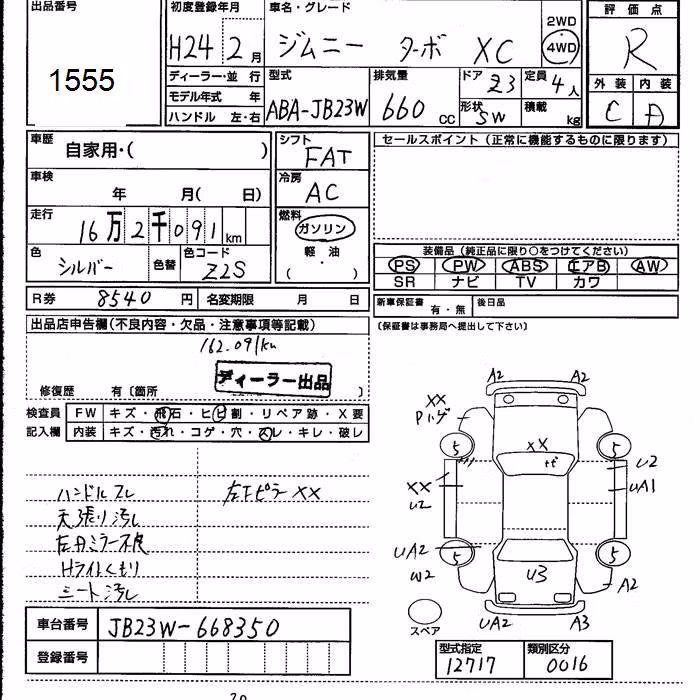 出品番号
1555
初度登録年月
H24 2月
車名・グレード
ジムニー ターボ XC
2WD
4WD
評価点
R
ディーラー・並行
モデル年式 年
ハンドル 左・右
型式
ABA-JB23W
排気量
660 CC
ドア 23
定員 4人
形状 SW
積載 kg
外装 内装
C D
車歴
自家用・( )
シフト
FAT
セールスポイント (正常に機能するものに限ります)
車検
年 月( 日)
冷房
AC
走行
16万2千091km
燃料
ガソリン
軽・油
( )
色
シルバー
色替
色コード
Z2S
装備品 (純正品に限り○をつけてください)
PS PW ABS エアB AW
SR ナビ TV カワ
R券 8540円
名変期限 月 日
新車保証書
有・無
後日品
(保証書は事務局へ提出して下さい)
出品店申告欄(不良内容・欠品・注意事項等記載)
162.091km
ディーラー出品
修復歴 有〔箇所 〕
検査員
記入欄
FW キズ・飛石・ヒビ割・リペア跡・X要
内装 キズ・汚れ・コゲ・穴・スレ・キレ・破レ
ハンドルスレ
左下ピラーXX
天張り汚レ
左Aミラー不良
Hライトくもり
シート汚レ
A2 A2
XX
Pハゲ
5 5
XX
U2
XX
UA1
U2
UA2
W2
5 5
U3
A2
UA2 A3
スペア
車台番号
JB23W-668350
登録番号
型式指定
12717
類別区分
0016